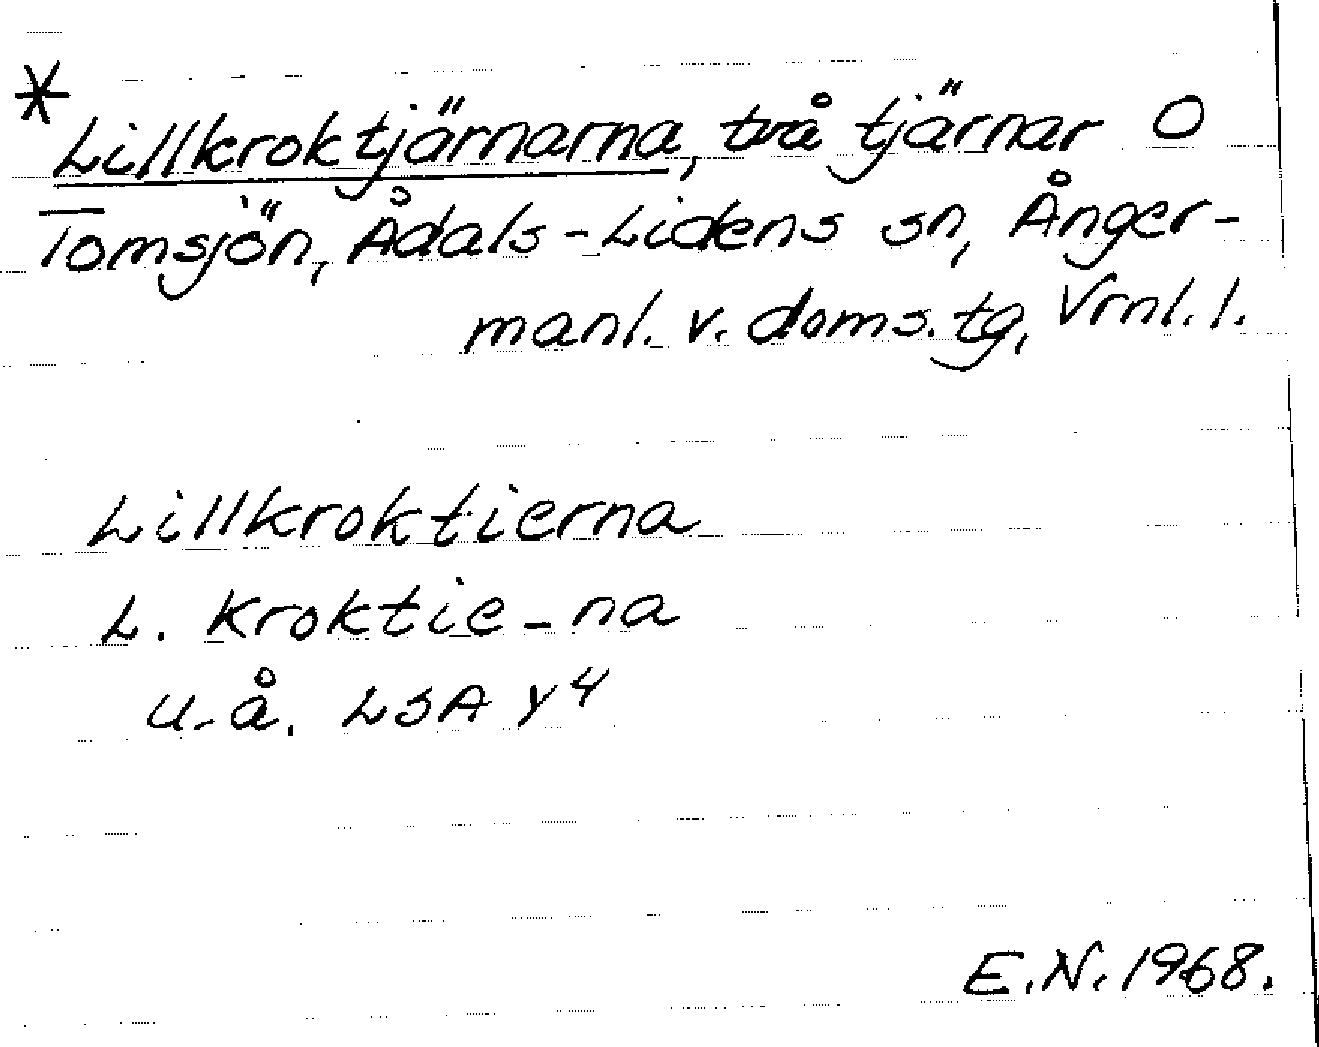 * Lillkroktjärnarna, två tjärnar O
Tomsjön, Ådals-Lidens sn, Ånger-
manl. v. doms. tg, Vrnl. l.
Lillkroktierna
L. Kroktie_na
u.å. LSA Y4
E.N. 1968.